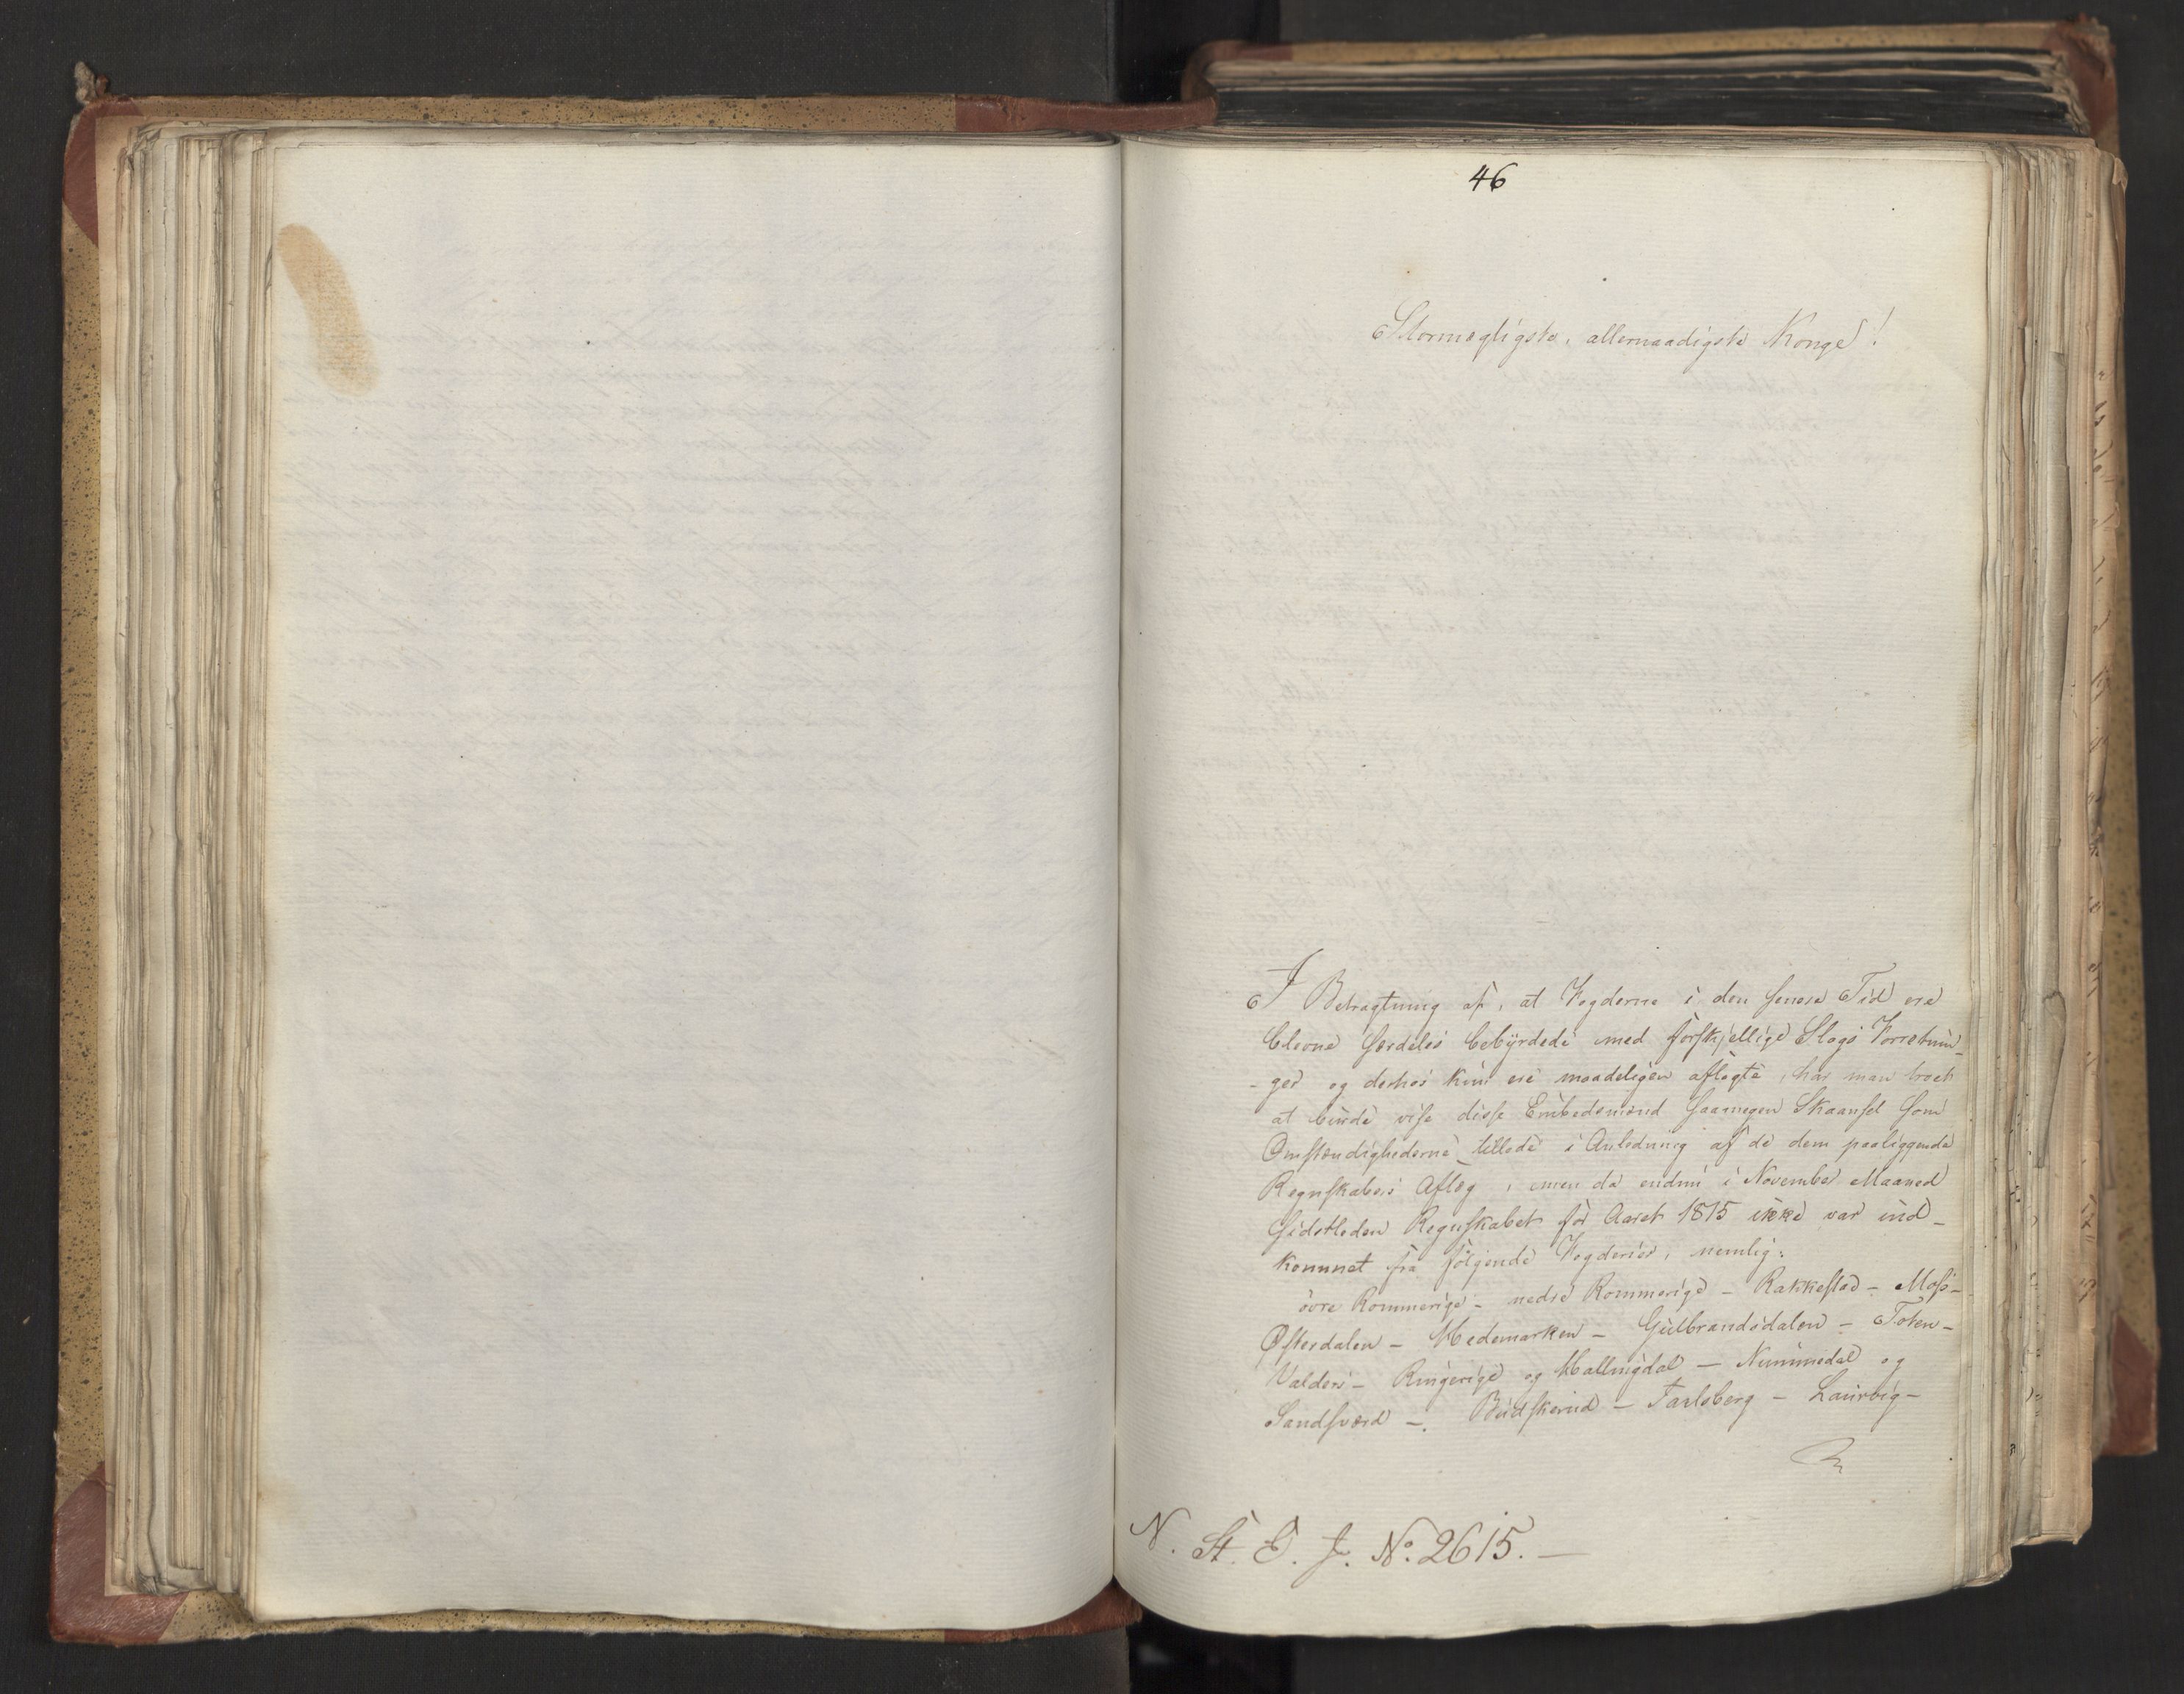 46
Stormægtigste, allernaadigste Konge!
I Betragtning af, at Fogderne i den senere Tid ere
blevne særdeles bebyrdede med forskjellige Slags Forretnin-
-ger og derhos kun ere maadeligen aflagte, har man troet
at burde vise disse Embedsmænd saamegen Skaansel som
Omstændighederne tillode i Anledning af de dem paaliggende
Regnskabers Aflæg, men da endnu i November Maaned
sidstleden Regnskabet for Aaret 1815 ikke var ind-
kommet fra følgende Fogderier, nemlig:
övre Rommerige - nedre Rommerige - Rakkestad - Moss-
Østerdalen - Hedemarken - Gulbrandsdalen - Toten-
Valders - Ringerige og Hallingdal - Nummedal og
Sandsværd - Budskerud - Jarlsberg - Laurvig-
N. St. E. J. No. 2615.-